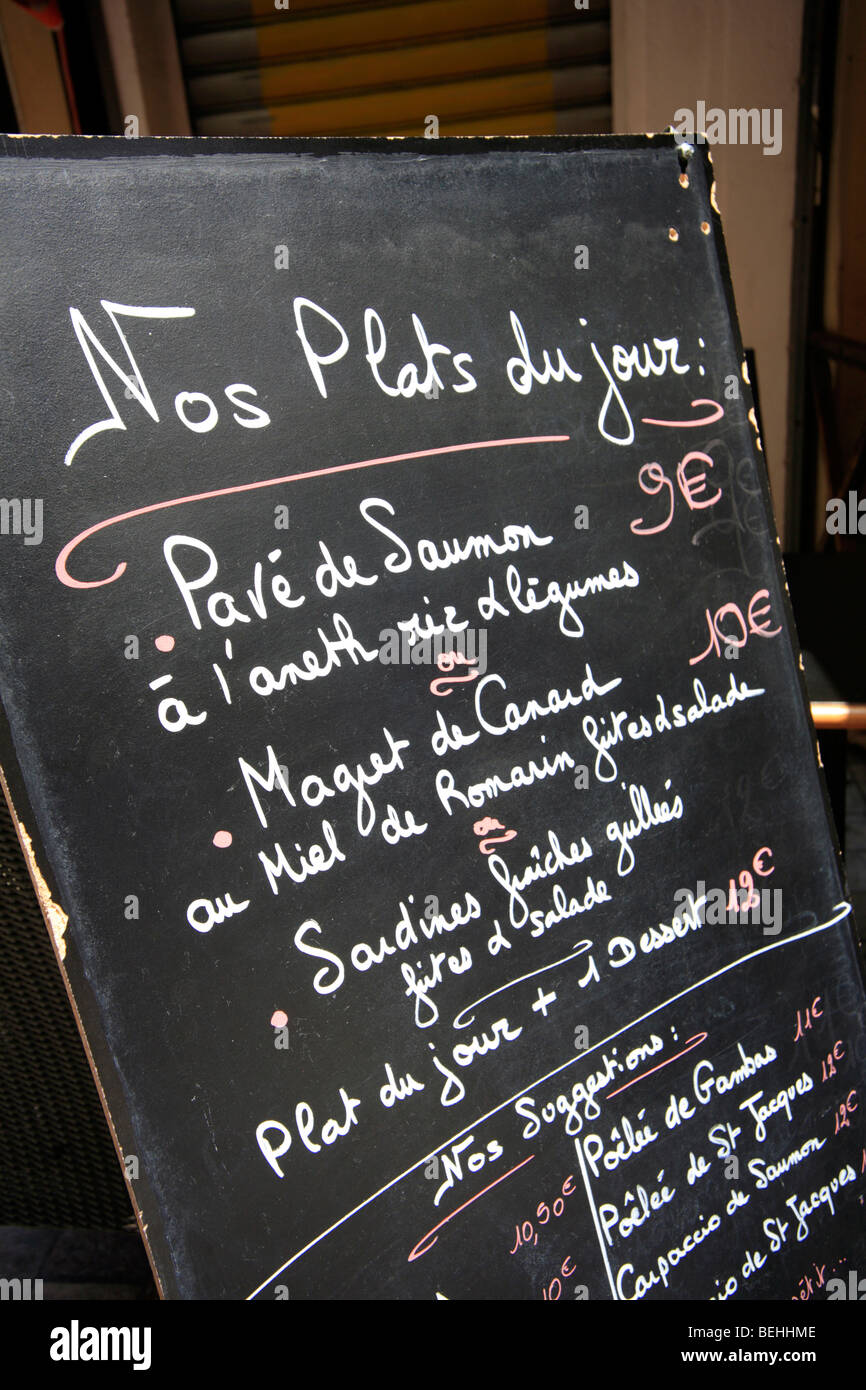 Nos Plats du jour :
9€
Pavé de Saumon
à l'aneth riz & légumes
ou
10€
Magret de Canard
au Miel de Romarin frites & salade
ou
Sardines fraîches grillées
frites & salade
Plat du jour + 1 Dessert 12€
Nos Suggestions :
Poêlée de Gambas 11€
Poêlée de St Jacques 12€
10,50€
Carpaccio de Saumon 12€
10€
de St Jacques
alamy
Image ID: BEHHME
www.alamy.com